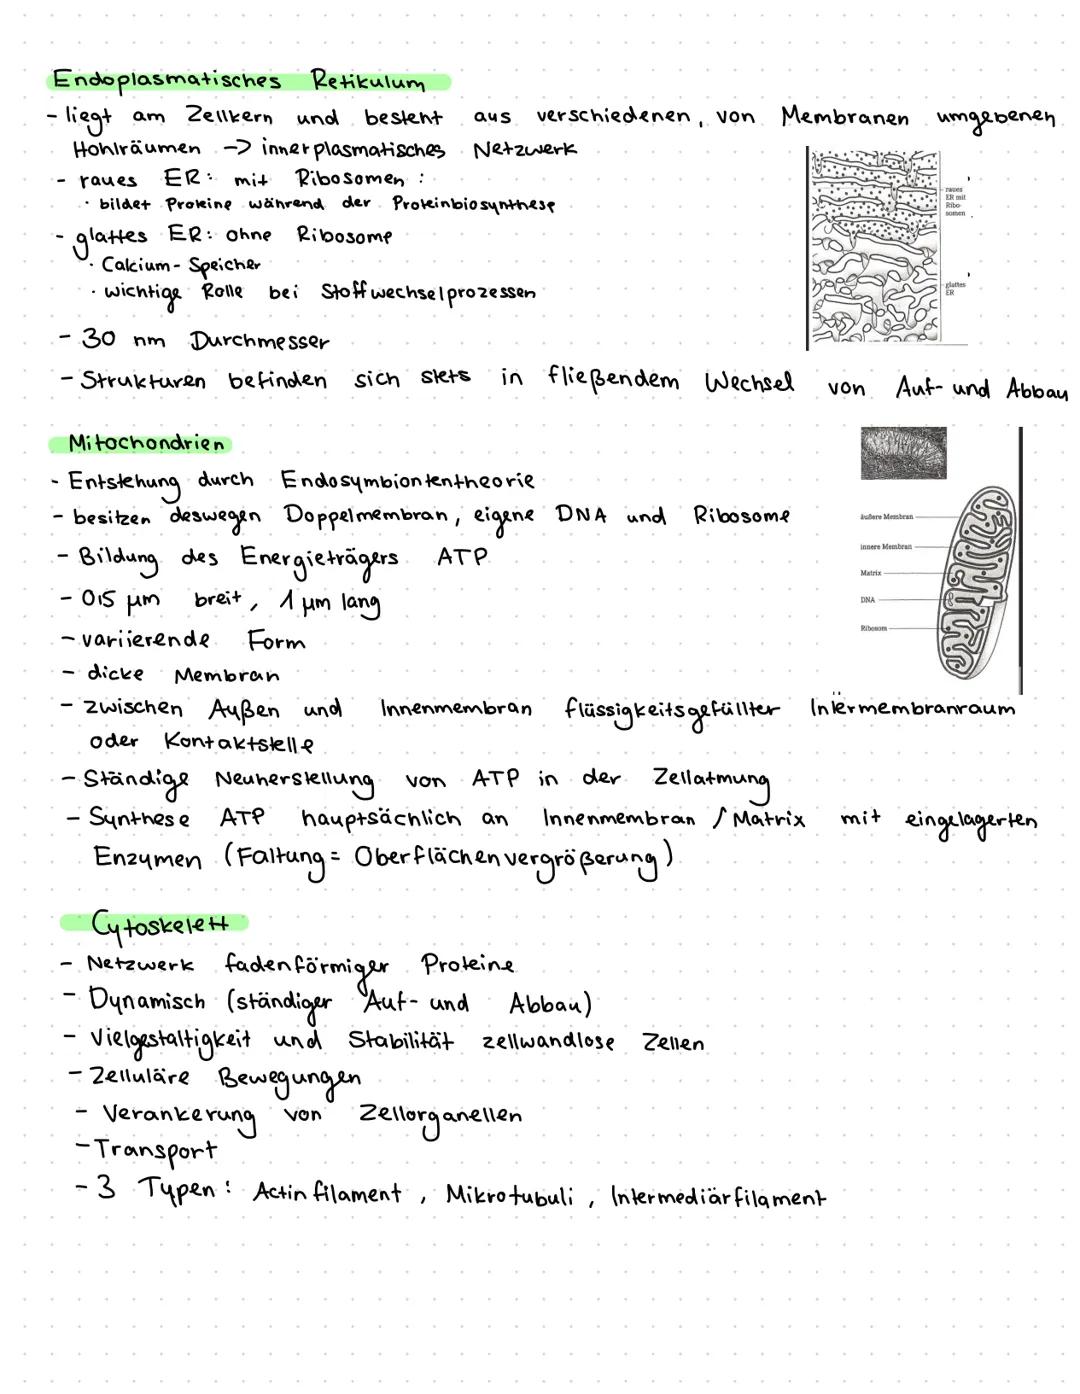 Endoplasmatisches Retikulum
- liegt am Zellkern und besteht aus verschiedenen, von Membranen umgebenen
Hohlräumen -> innerplasmatisches Netzwerk
- raues ER: mit Ribosomen :
· bildet Proteine während der Proteinbiosynthese
- glattes ER: ohne Ribosome
· Calcium-Speicher
· wichtige Rolle bei Stoffwechselprozessen
- 30 nm Durchmesser
- Strukturen befinden sich stets in fließendem Wechsel von Auf- und Abbau
raues
ER mit
Ribo-
somen
glattes
ER
Mitochondrien
- Entstehung durch Endosymbiontentheorie
- besitzen deswegen Doppelmembran, eigene DNA und Ribosome
- Bildung des Energieträgers ATP
- 0,5 µm breit, 1 µm lang
- variierende Form
- dicke Membran
- zwischen Außen und Innenmembran flüssigkeitsgefüllter Intermembranraum
oder Kontaktstelle
- Ständige Neuherstellung von ATP in der Zellatmung
- Synthese ATP hauptsächlich an Innenmembran / Matrix mit eingelagerten
Enzymen (Faltung = Oberflächenvergrößerung)
äußere Membran
innere Membran
Matrix
DNA
Ribosom
Cytoskelett
- Netzwerk fadenförmiger Proteine
- Dynamisch (ständiger Auf- und Abbau)
- Vielgestaltigkeit und Stabilität zellwandlose Zellen
- Zelluläre Bewegungen
- Verankerung von Zellorganellen
- Transport
- 3 Typen: Actinfilament, Mikrotubuli, Intermediärfilament